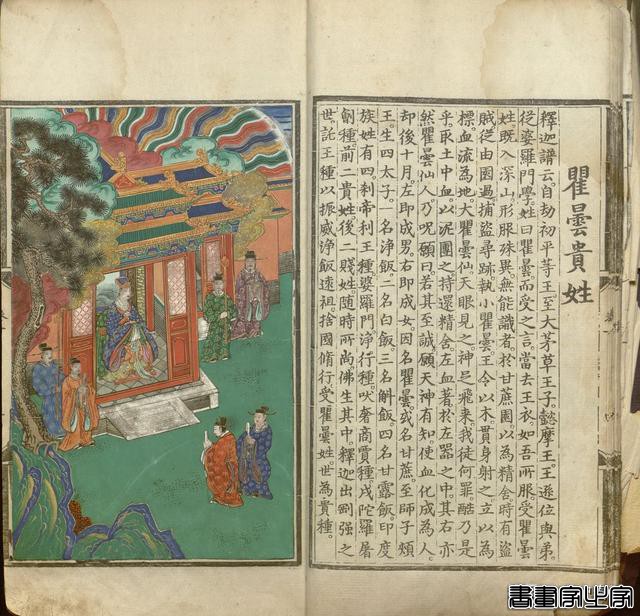 瞿曇貴姓
釋迦譜云。自劫初平等王至大茅草王子。懿摩王。王遜位與弟。
從婆羅門學。姓曰瞿曇而受之言。當去王衣。如吾所服。受瞿曇
姓既入深山。形服殊異。無能識者。於甘蔗園。以為精舍時有盜
賊從由園過。捕盜尋跡。執小瞿曇。王令以木。貫身射之。立以為
標。血流為地。大瞿曇仙。天眼見之。神足飛來。我徒何罪。酷乃是
乎。取土中血。以泥團之。持還精舍。左血著於左器之中。其右亦
然。瞿曇仙人。乃呪願曰。若其至誠。願天神有知。使血化成為人。
却後十月。左即成男。右即成女。因名瞿曇。或名甘蔗。至師子頰
王生四太子。一名淨飯二名白飯三名斛飯四名甘露飯。印度
族姓有四。剎帝利王種。婆羅門。淨行種。吠奢商賈種。戍陀羅屠
劊種。前二貴姓後二賤姓隨時所尚。佛生其中。釋迦出剛强之
世。託王種以振威。淨飯遠祖。捨國脩行。受瞿曇姓。世為貴種。
書畫家